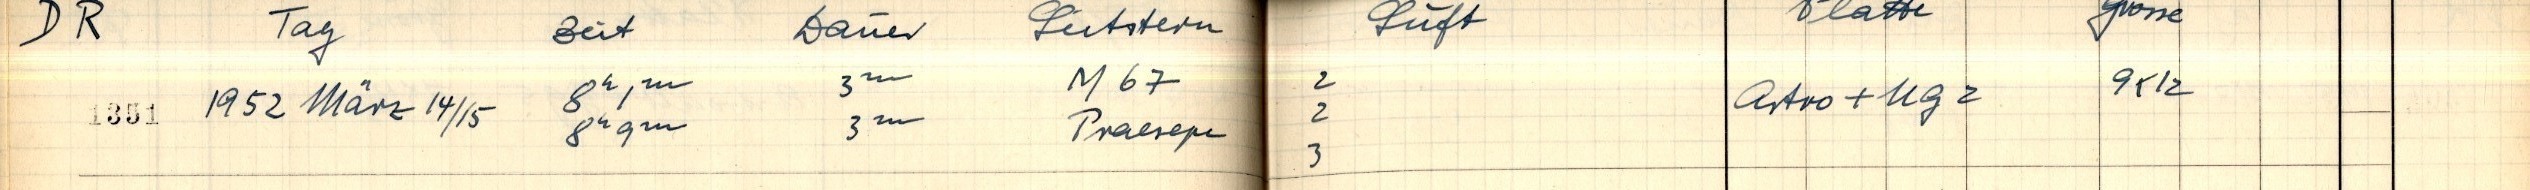 DR Tag Zeit Dauer Leitstern Luft Platte Grösse
1351 1952 März 14/15 8h 1m 3m M 67 2 Astro + UG 2 9x12
8h 9m 3m Praesepe 2
3